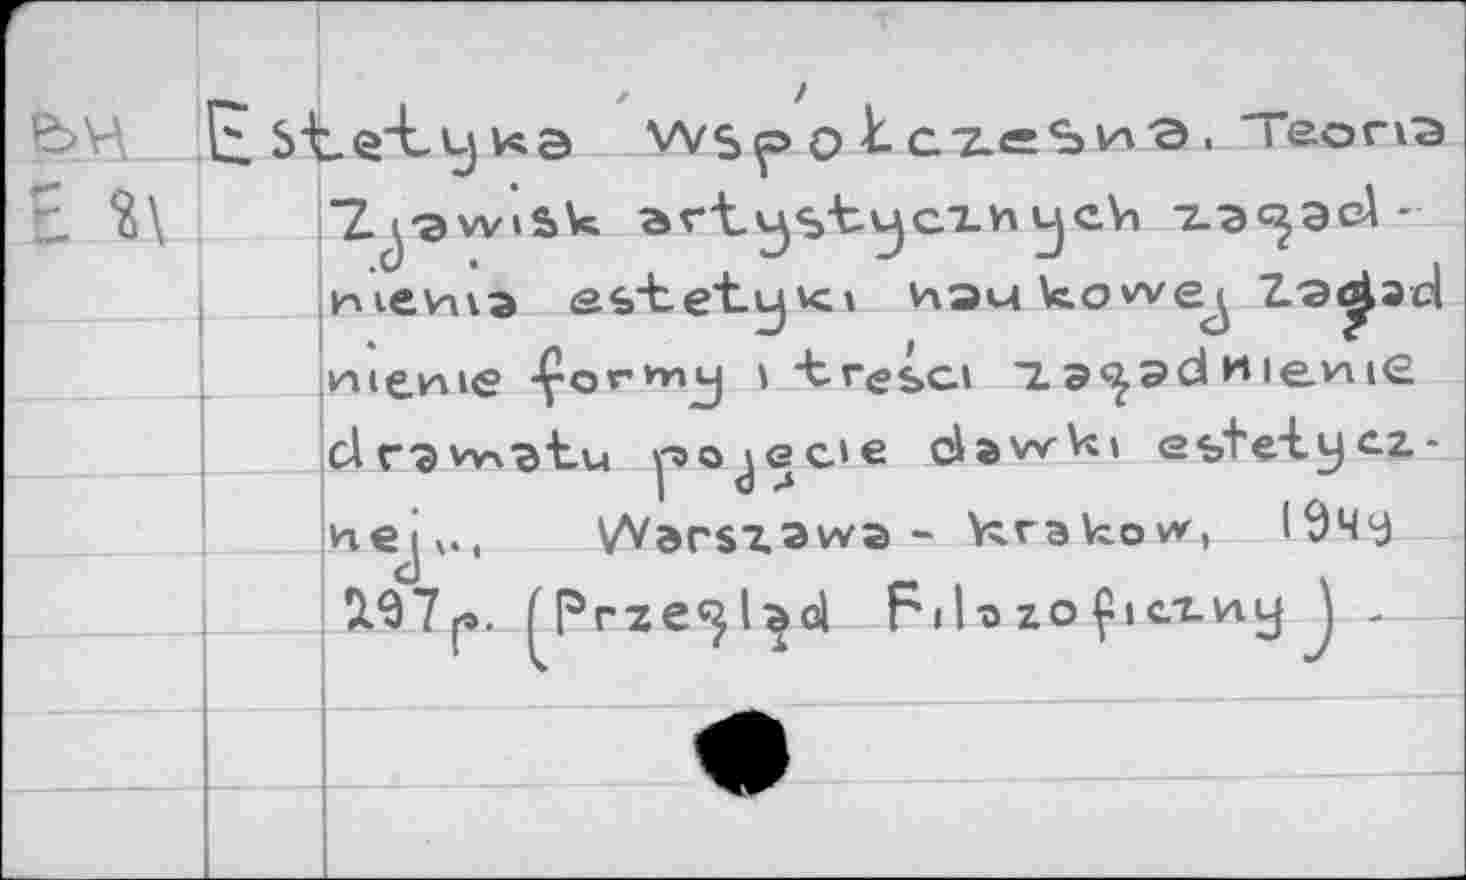 ВН Estetyka wspołczesna. Teoria
E 81 Zjawisk artystycznych zagad-
nienia estetyki naukowej Zagad
nienie formy i treści zagadnienie
dramatu pojęcie dawki estetycz-
nej..., Warszawa - krakow, 1949
297p. (Przegląd Filozoficzny) -